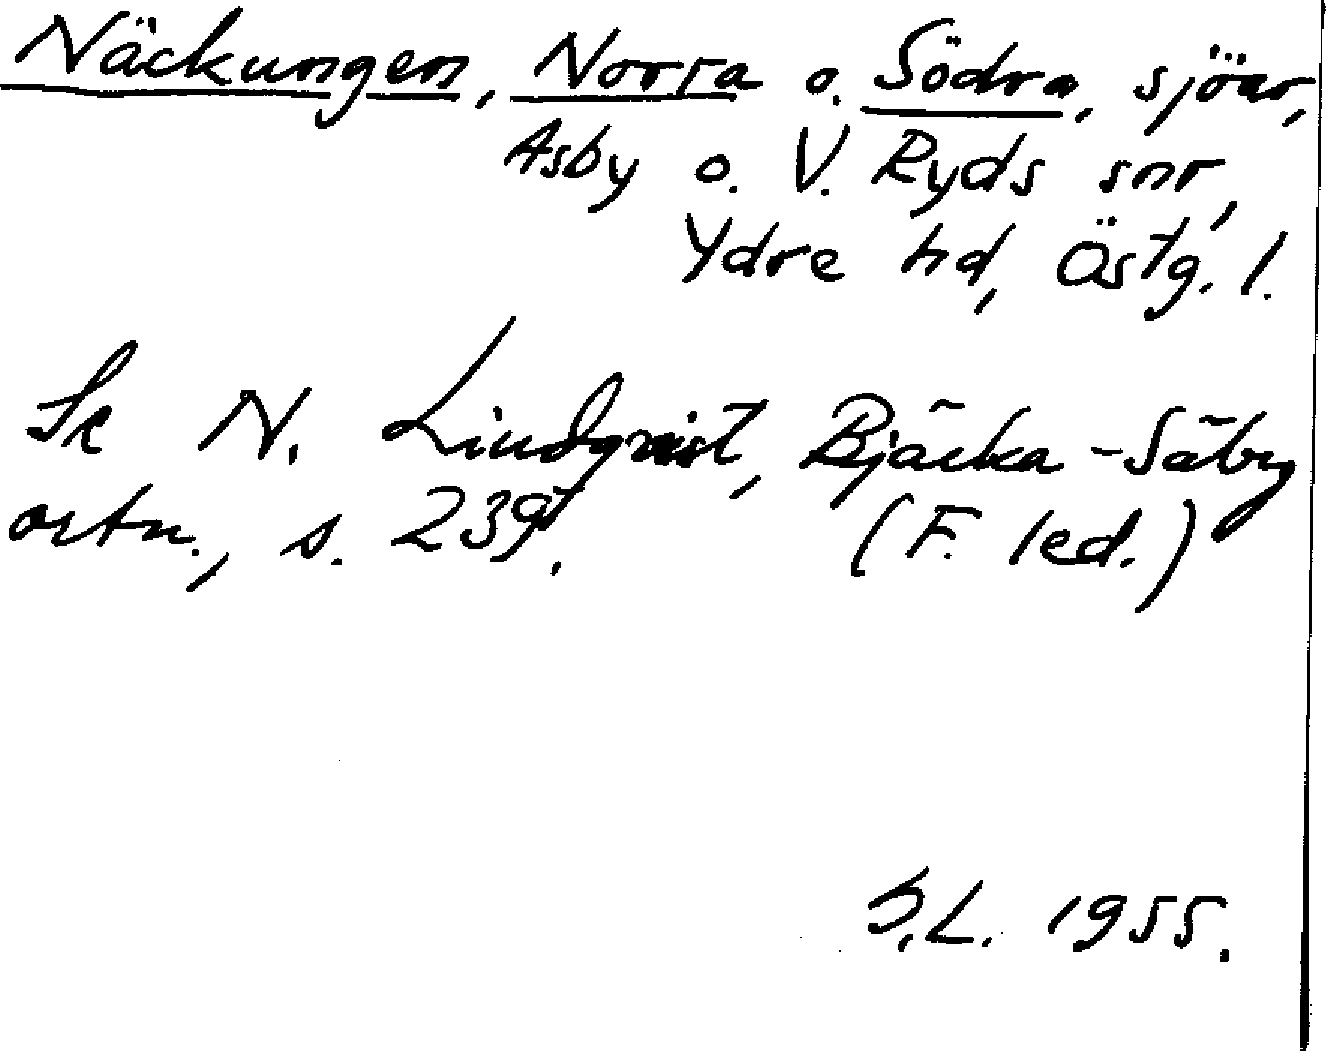 Näckungen, Norra o. Södra, sjöar,
Asby o. V. Ryds snr,
Ydre hd, Östg. l.
Se N. Lindqvist, Bjärka-Säby
ortn., s. 239. (F. led.)
S.L. 1955.